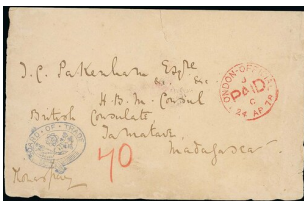 T. C. Pakenham Esqre
&c. &c.
H. B. M. Consul
British Consulate
Tamatave
Madagascar
70
LONDON · OFFICIAL
PAID
C
24 AP 78
BOARD · OF · TRADE